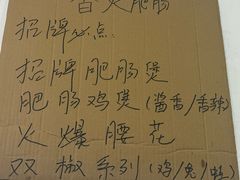 香火肥肠
招牌必点:
招牌肥肠煲
肥肠鸡煲(酱香/香辣)
火爆腰花
双椒系列(鸡/兔/蛙)